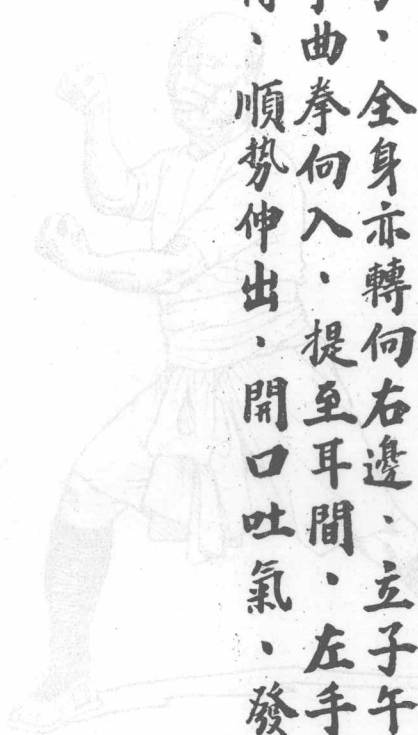 、全身亦轉向右邊、立子午
曲拳向入、提至耳間、左手
、順勢伸出、開口吐氣、發